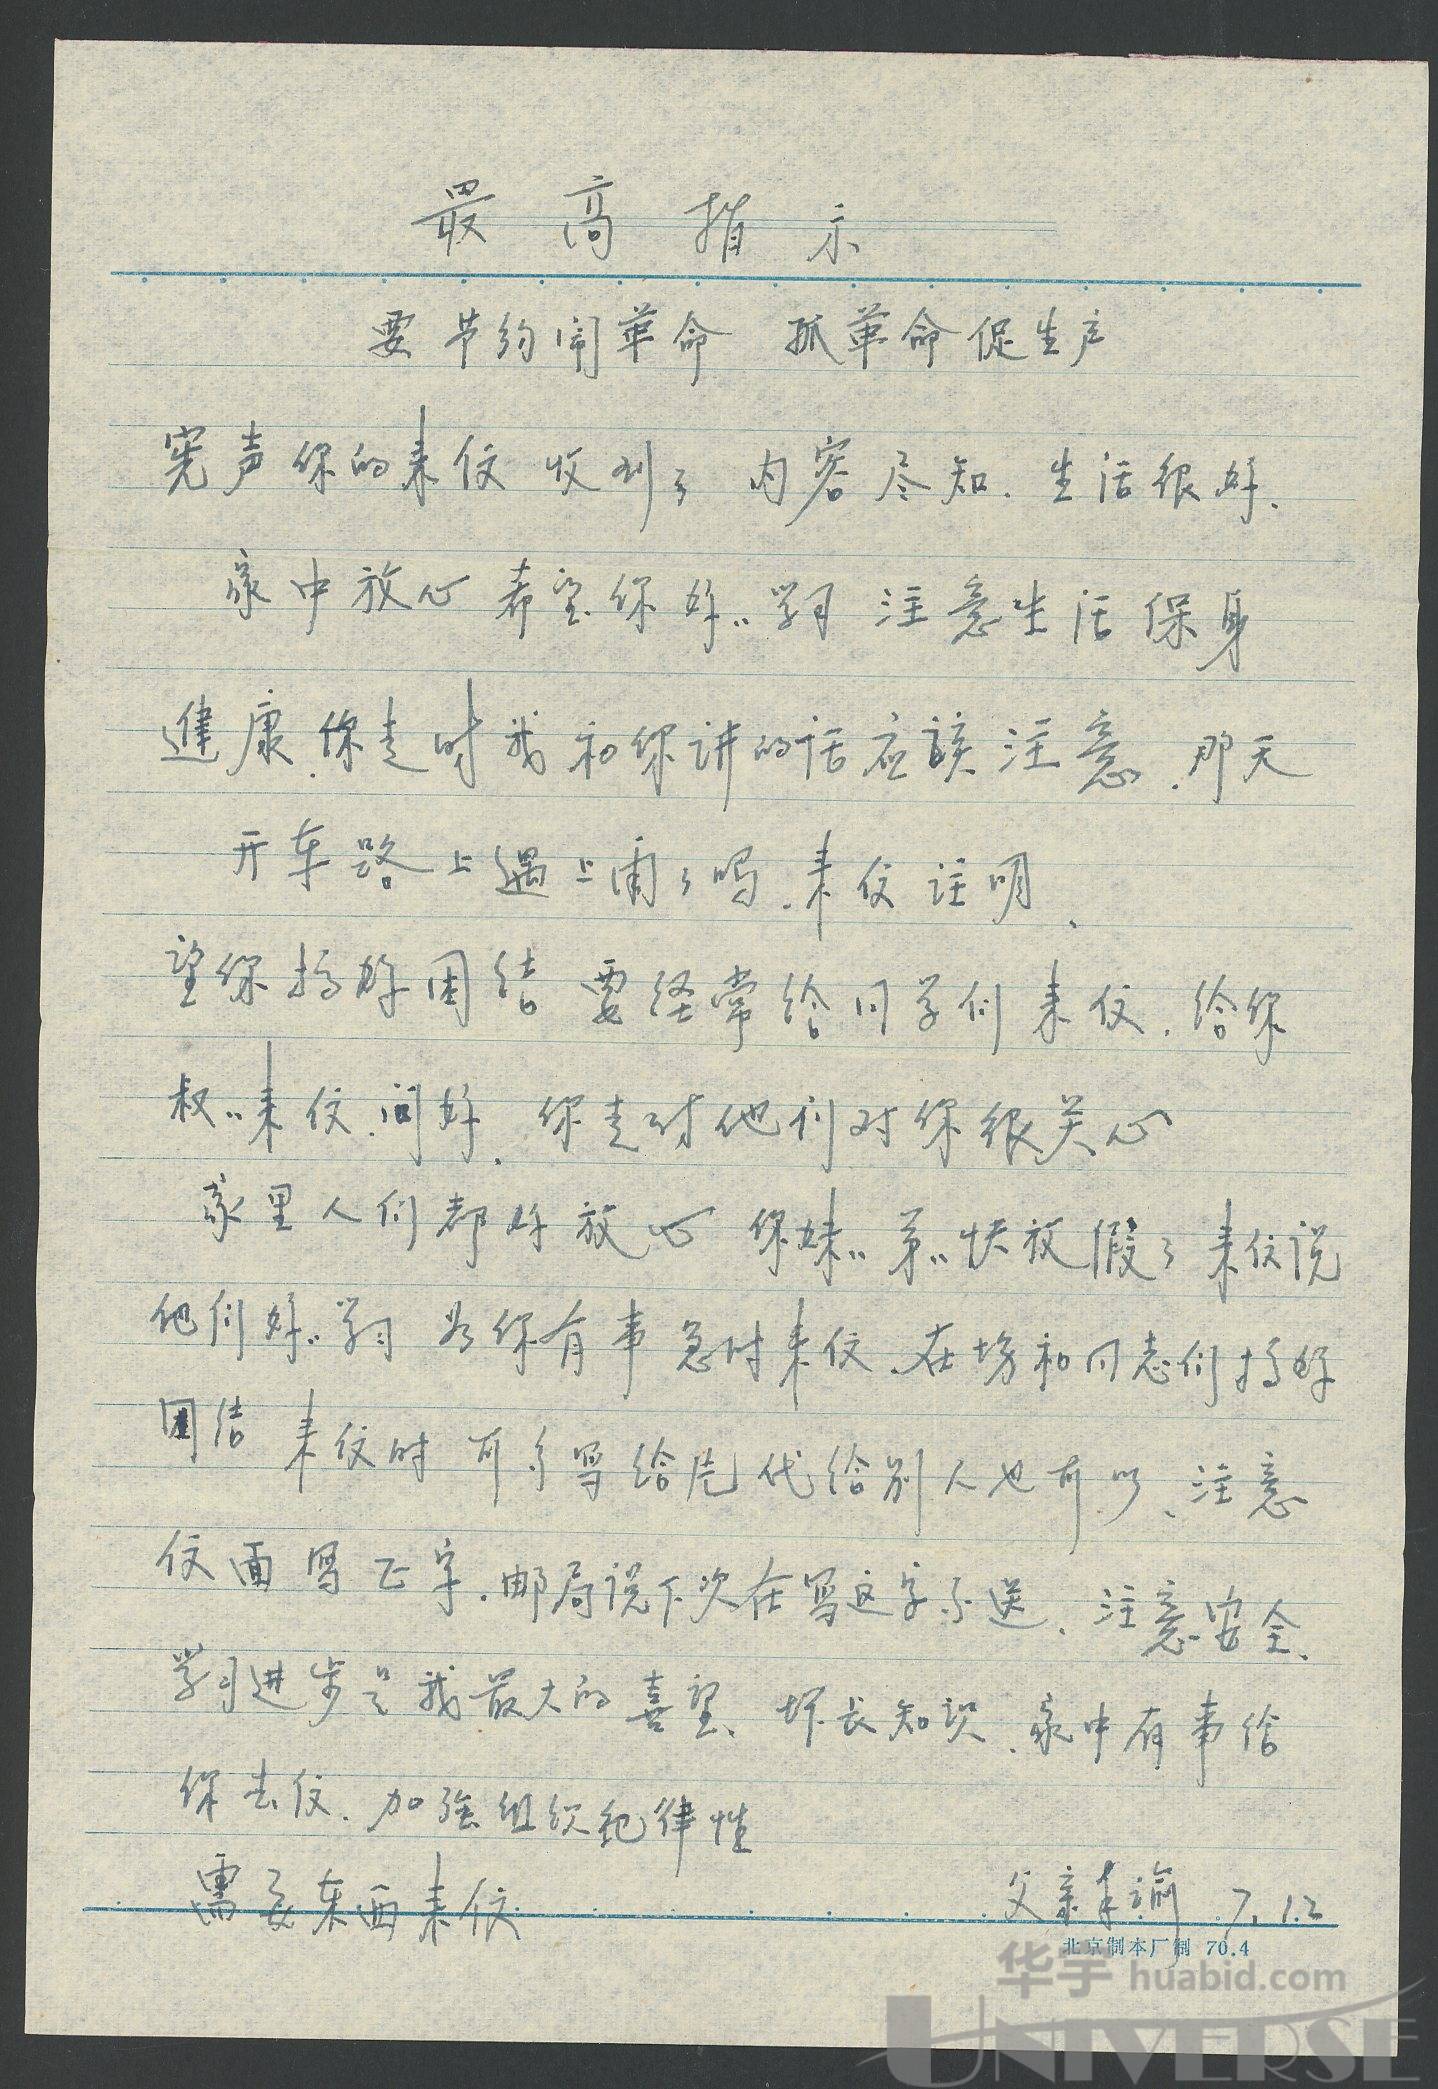 最高指示
要节约闹革命 抓革命促生产
宪声你的来信收到了 内容尽知.生活很好.
家中放心希望你好〃学习 注意生活保身
健康.你走时我和你讲的话应该注意.那天
开车路上遇上雨了吗.来信注明.
望你搞好团结 要经常给同学们来信.给你
叔〃来信.问好.你走时他们对你很关心
家里人们都好放心 你妹〃弟〃快放假了 来信说
他们好〃学习 你有事急时来信.在场和同志们搞好
团结 来信时 可写给 代给别人也可以.注意
信面写正字.邮局说下次在写这字不送.注意安全.
学习进步是我最大的喜望.增长知识.家中有事给
你去信.加强组织纪律性
需要东西来信
父亲 7.12
北京制本厂制 70.4
华宇 huabid.com
UNIVERSE